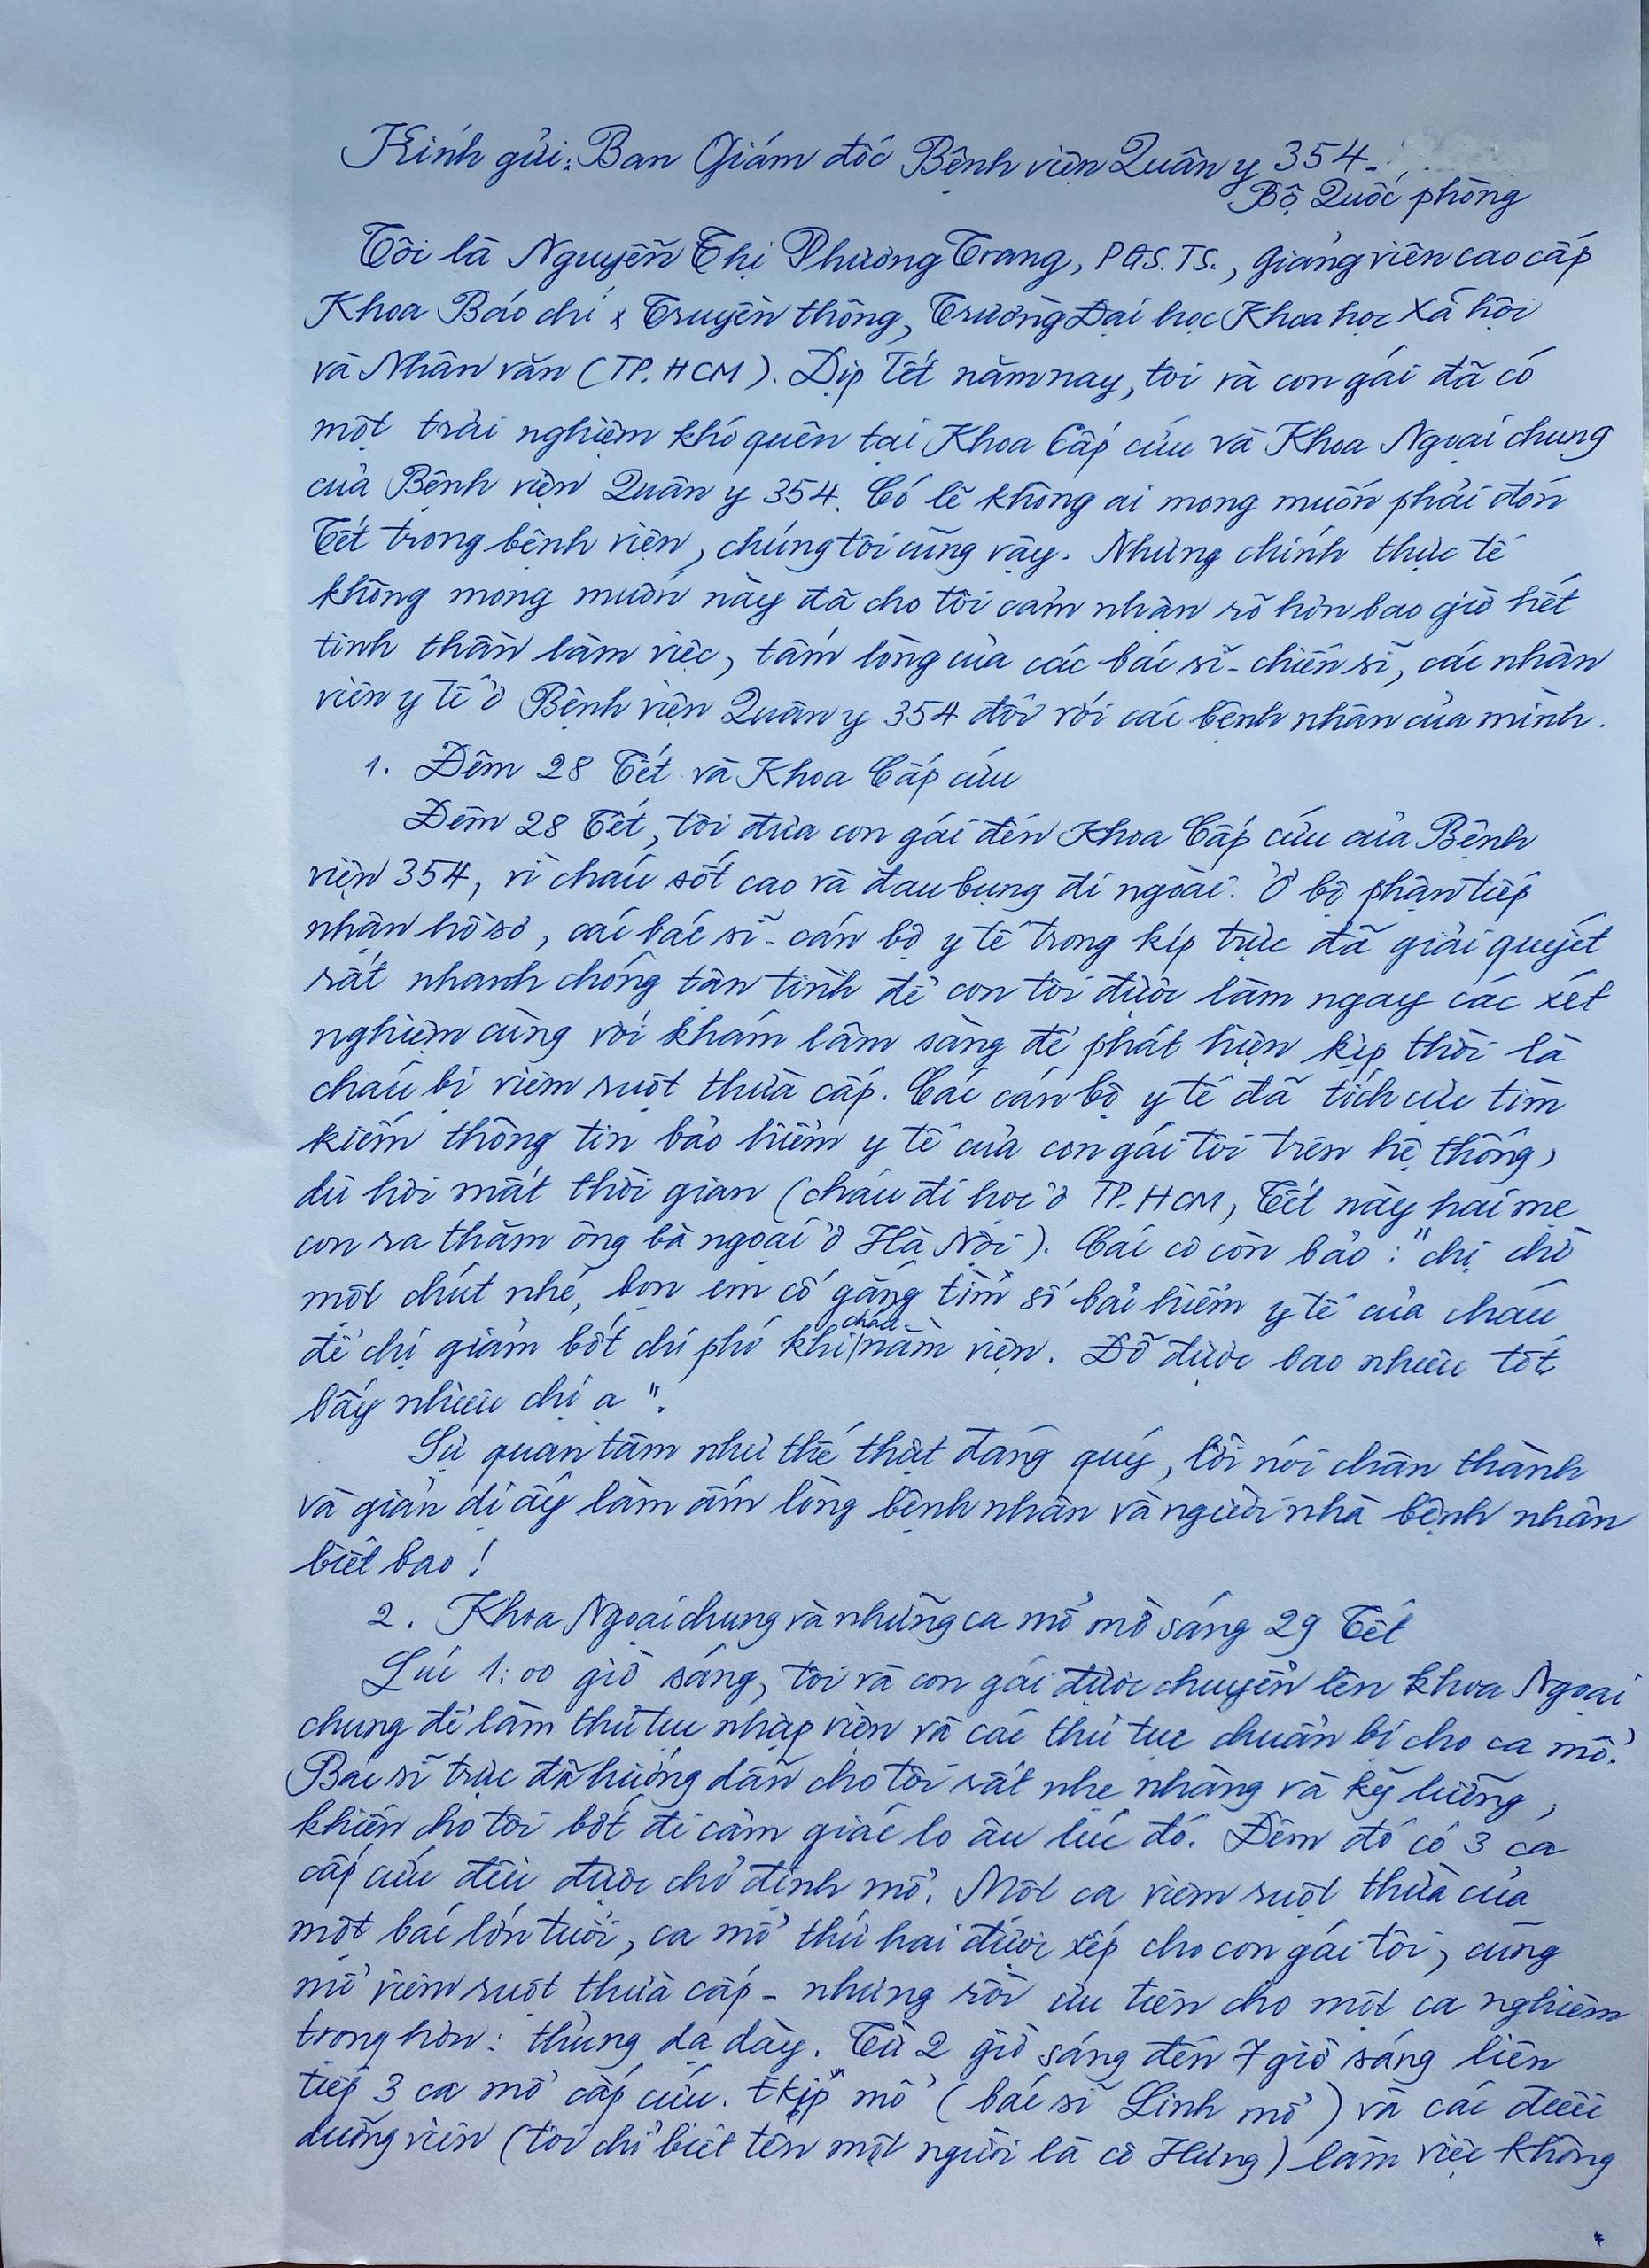 Kính gửi: Ban Giám đốc Bệnh viện Quân y 354
Bộ Quốc phòng
Tôi là Nguyễn Thị Phương Trang, PGS.TS., Giảng viên cao cấp
Khoa Báo chí & Truyền thông, Trường Đại học Khoa học Xã hội
và Nhân văn (TP. HCM). Dịp Tết năm nay, tôi và con gái đã có
một trải nghiệm khó quên tại Khoa Cấp cứu và Khoa Ngoại chung
của Bệnh viện Quân y 354. Có lẽ không ai mong muốn phải đón
Tết trong bệnh viện, chúng tôi cũng vậy. Nhưng chính thực tế
không mong muốn này đã cho tôi cảm nhận rõ hơn bao giờ hết
tinh thần làm việc, tấm lòng của các bác sĩ - chiến sĩ, các nhân
viên y tế ở Bệnh viện Quân y 354 đối với các bệnh nhân của mình.
1. Đêm 28 Tết và Khoa Cấp cứu
Đêm 28 Tết, tôi đưa con gái đến Khoa Cấp cứu của Bệnh
viện 354, vì cháu sốt cao và đau bụng đi ngoài. Ở bộ phận tiếp
nhận hồ sơ, các bác sĩ - cán bộ y tế trong kíp trực đã giải quyết
rất nhanh chóng tận tình để con tôi được làm ngay các xét
nghiệm cùng với khám lâm sàng để phát hiện kịp thời là
cháu bị viêm ruột thừa cấp. Các cán bộ y tế đã tích cực tìm
kiếm thông tin bảo hiểm y tế của con gái tôi trên hệ thống,
dù hơi mất thời gian (cháu đi học ở TP. HCM, Tết này hai mẹ
con ra thăm ông bà ngoại ở Hà Nội). Các cô còn bảo: "chị chờ
một chút nhé, bọn em cố gắng tìm số bảo hiểm y tế của cháu
để chị giảm bớt chi phí khi cháu nằm viện. Đỡ được bao nhiêu tốt
bấy nhiêu chị ạ".
Sự quan tâm như thế thật đáng quý, lời nói chân thành
và giản dị ấy làm ấm lòng bệnh nhân và người nhà bệnh nhân
biết bao!
2. Khoa Ngoại chung và những ca mổ mờ sáng 29 Tết
Lúc 1:00 giờ sáng, tôi và con gái được chuyển lên khoa Ngoại
chung để làm thủ tục nhập viện và các thủ tục chuẩn bị cho ca mổ.
Bác sĩ trực đã hướng dẫn cho tôi rất nhẹ nhàng và kỹ lưỡng,
khiến cho tôi bớt đi cảm giác lo âu lúc đó. Đêm đó có 3 ca
cấp cứu đều được chỉ định mổ. Một ca viêm ruột thừa của
một bác lớn tuổi, ca mổ thứ hai được xếp cho con gái tôi, cũng
mổ viêm ruột thừa cấp - nhưng rồi ưu tiên cho một ca nghiêm
trọng hơn: thủng dạ dày. Từ 2 giờ sáng đến 7 giờ sáng liên
tiếp 3 ca mổ cấp cứu. Êkíp mổ (bác sĩ Linh mổ) và các điều
dưỡng viên (tôi chỉ biết tên một người là cô Hưng) làm việc không